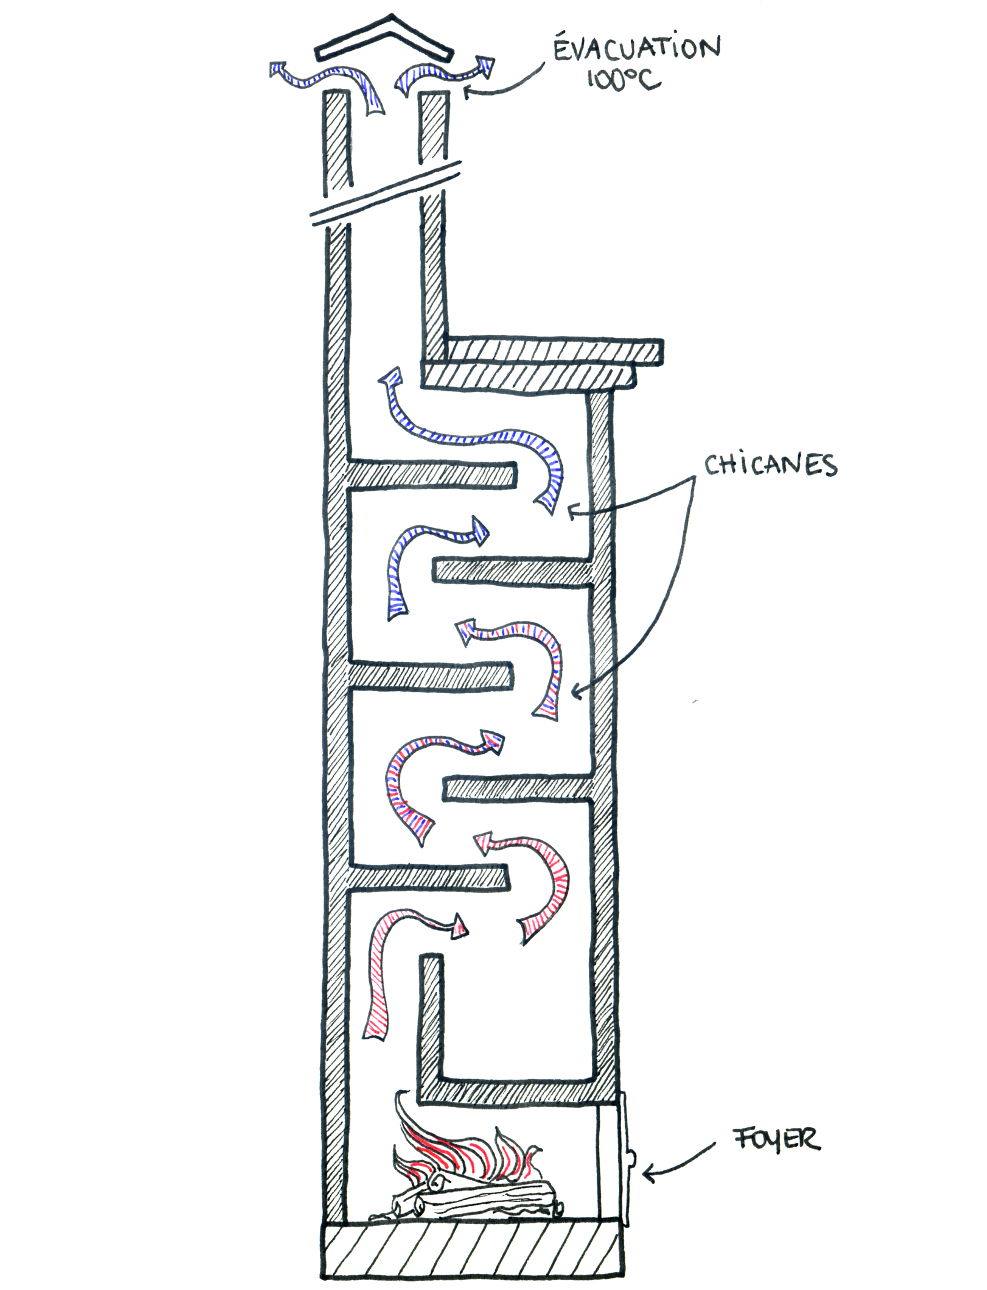 ÉVACUATION
100°C
CHiCANES
FOYER